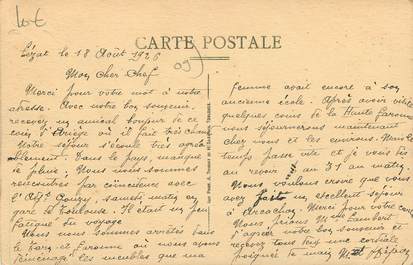 CARTE POSTALE
Lézat le 18 Août 1926
Mon Cher Chef
Merci pour votre mot à notre
adresse. Avec notre bon souvenir,
recevez un amical bonjour de ce
coin d'Ariège où il fait très chaud
Notre séjour s'écoule très agréa
blement. Dans le pays, manque
de pluie. Nous nous sommes
rencontrés par coïncidence avec
l'Adjt Gouzy, samedi matin en
gare de Toulouse. Il était un peu
fatigué du voyage
Nous nous sommes arrêtés dans
le Tarn et Garonne où nous avons
déménagé les meubles que ma
femme avait encore à son
ancienne école. Après avoir visité
quelques coins de la Haute Garonne
nous séjournerons maintenant
chez nous et les environs. Le
temps passe vite et je vous dis
au revoir au 31 au matin.
Nous voulons croire que vous
avez fait un excellent séjour
à Arcachon. Merci pour votre carte
Nous prions Mme Lambert
d'agréer notre bon souvenir et
recevez tous deux une cordiale
poignée de main